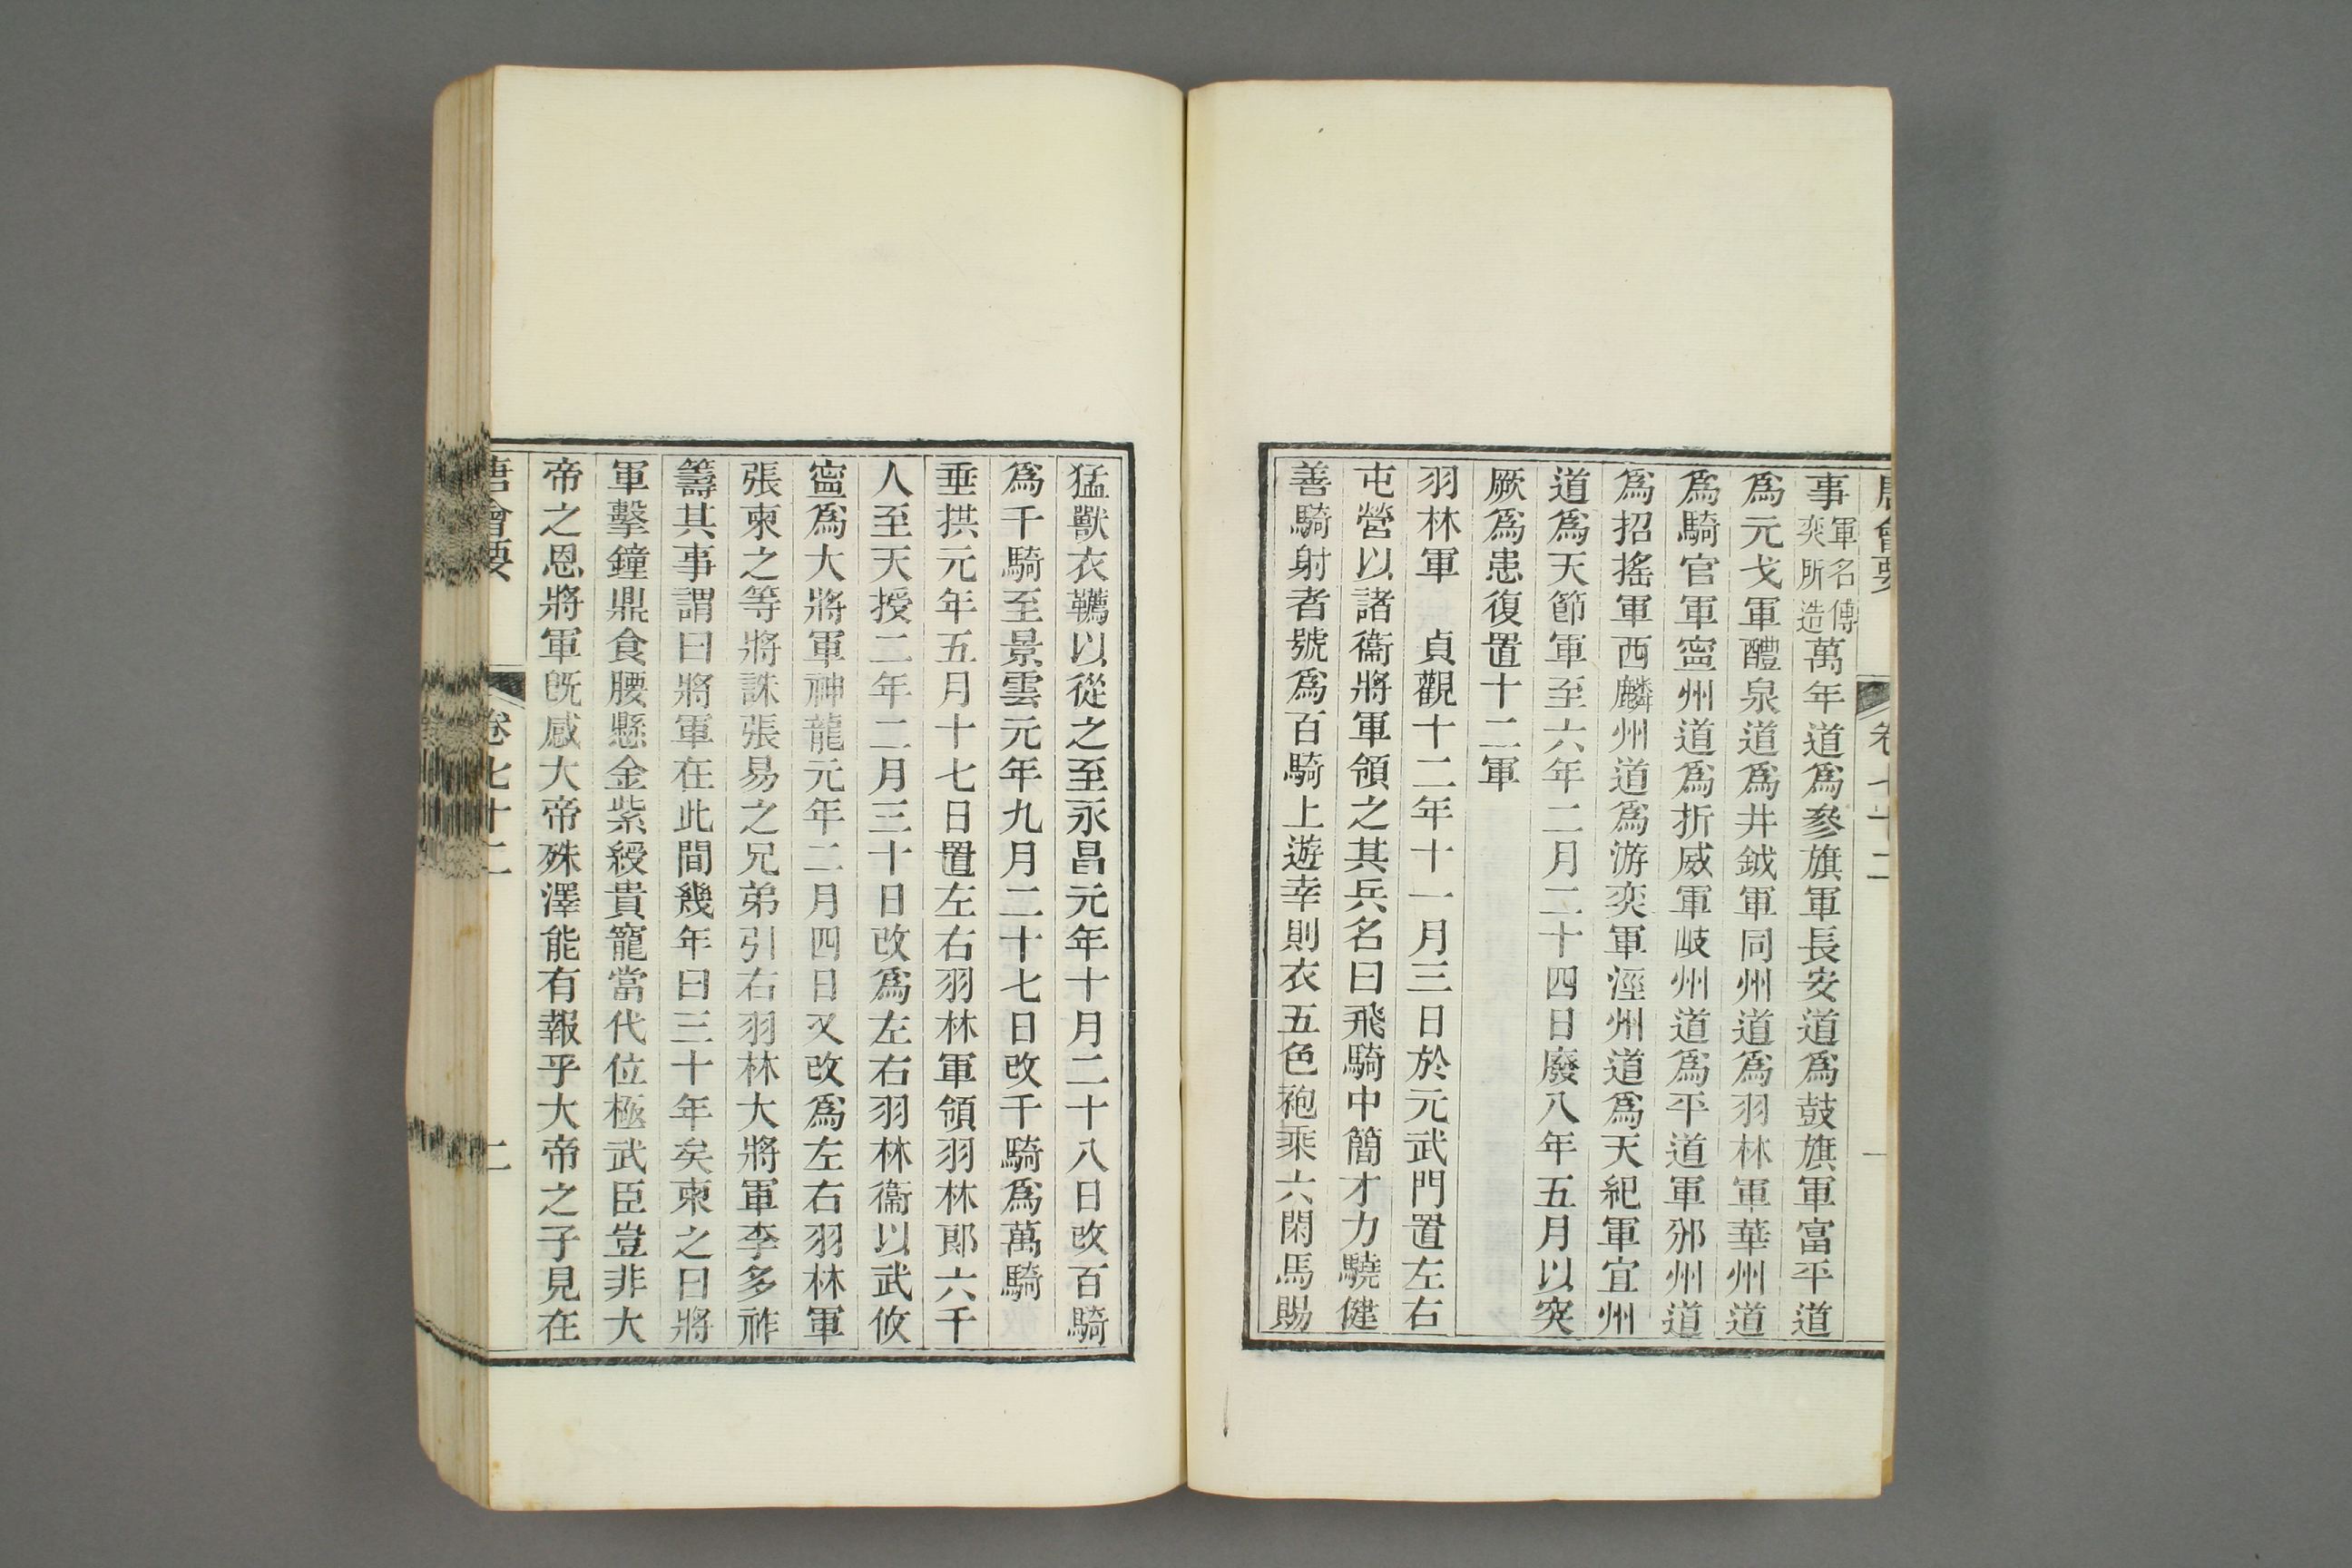 唐會要　卷七十二　一
事軍名傅奕所造萬年道爲參旗軍長安道爲鼓旗軍富平道
爲元戈軍醴泉道爲井鉞軍同州道爲羽林軍華州道
爲騎官軍寧州道爲折威軍岐州道爲平道軍邠州道
爲招搖軍西麟州道爲游奕軍涇州道爲天紀軍宜州
道爲天節軍至六年二月二十四日廢八年五月以突
厥爲患復置十二軍
羽林軍　貞觀十二年十一月三日於元武門置左右
屯營以諸衞將軍領之其兵名曰飛騎中簡才力驍健
善騎射者號爲百騎上遊幸則衣五色袍乘六閑馬賜
猛獸衣韉以從之至永昌元年十月二十八日改百騎
爲千騎至景雲元年九月二十七日改千騎爲萬騎
垂拱元年五月十七日置左右羽林軍領羽林郎六千
人至天授二年二月三十日改爲左右羽林衞以武攸
寧爲大將軍神龍元年二月四日又改爲左右羽林軍
張柬之等將誅張易之兄弟引右羽林大將軍李多祚
籌其事謂曰將軍在此間幾年曰三十年矣柬之曰將
軍擊鐘鼎食腰懸金紫綬貴寵當代位極武臣豈非大
帝之恩將軍旣感大帝殊澤能有報乎大帝之子見在
唐會要　卷七十二　二